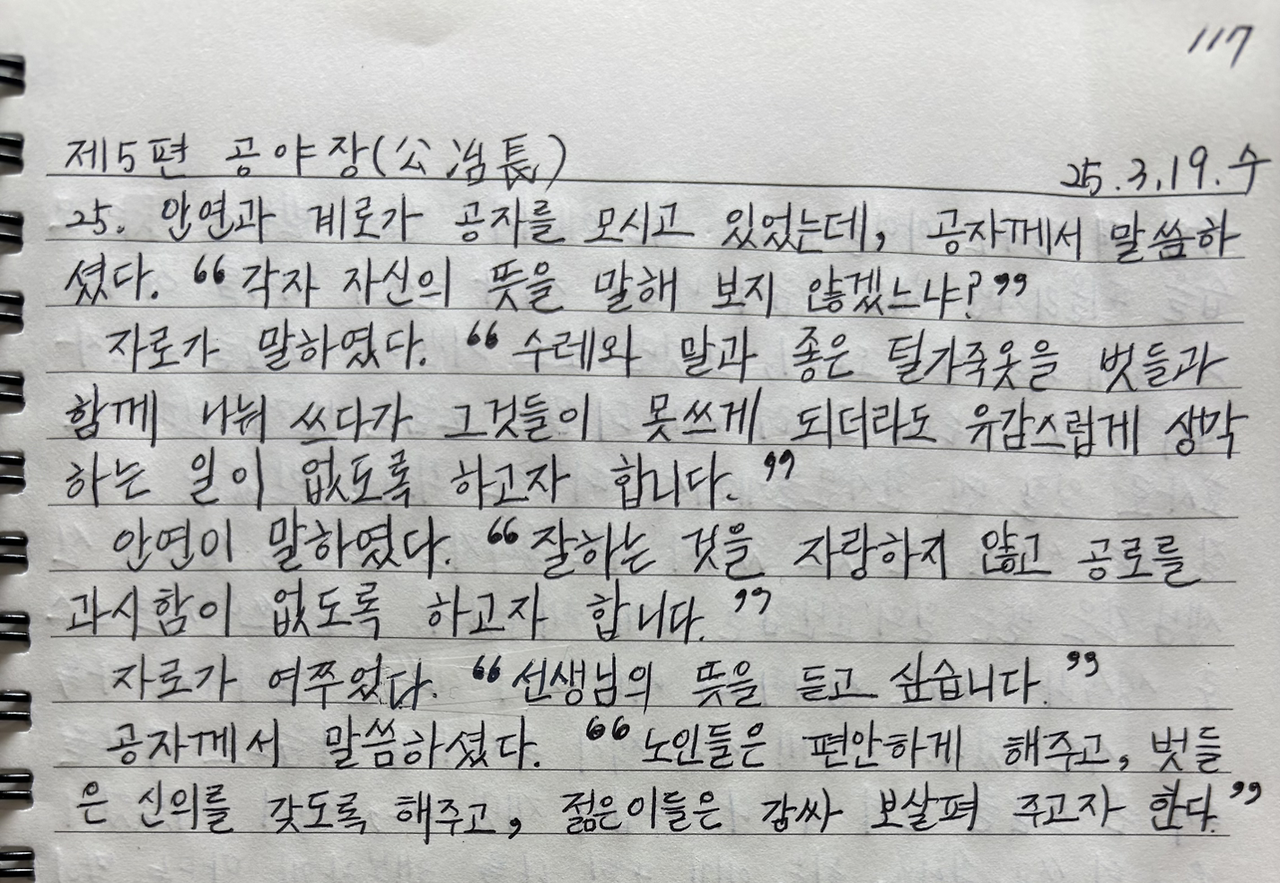 117
제5편 공야장(公冶長) 25.3.19.수
25. 안연과 계로가 공자를 모시고 있었는데, 공자께서 말씀하
셨다. “각자 자신의 뜻을 말해 보지 않겠느냐?”
자로가 말하였다. “수레와 말과 좋은 털가죽옷을 벗들과
함께 나눠 쓰다가 그것들이 못쓰게 되더라도 유감스럽게 생각
하는 일이 없도록 하고자 합니다.”
안연이 말하였다. “잘하는 것을 자랑하지 않고 공로를
과시함이 없도록 하고자 합니다.”
자로가 여쭈었다. “선생님의 뜻을 듣고 싶습니다.”
공자께서 말씀하셨다. “노인들은 편안하게 해주고, 벗들
은 신의를 갖도록 해주고, 젊은이들은 감싸 보살펴 주고자 한다.”